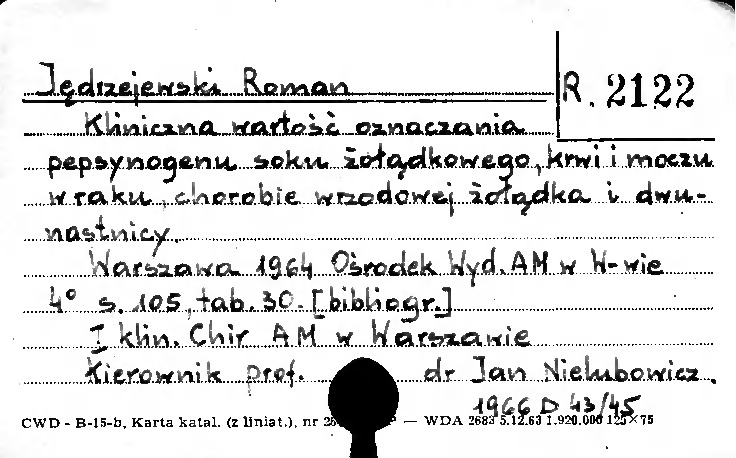 Jędrzejewski Roman
R. 2122
Kliniczna wartość oznaczania
pepsynogenu soku żołądkowego, krwi i moczu
w raku, chorobie wrzodowej żołądka i dwu-
nastnicy.
Warszawa 1964 Ośrodek Wyd. AM w W-wie
4° s. 105, tab. 30. [bibliogr.]
I klin. Chir AM w Warszawie
Kierownik prof. dr Jan Nielubowicz.
1966 D 43/45
CWD - B-15-b, Karta katal. (z liniat.), nr — WDA 2683 5.12.63 1.920.000 125×75